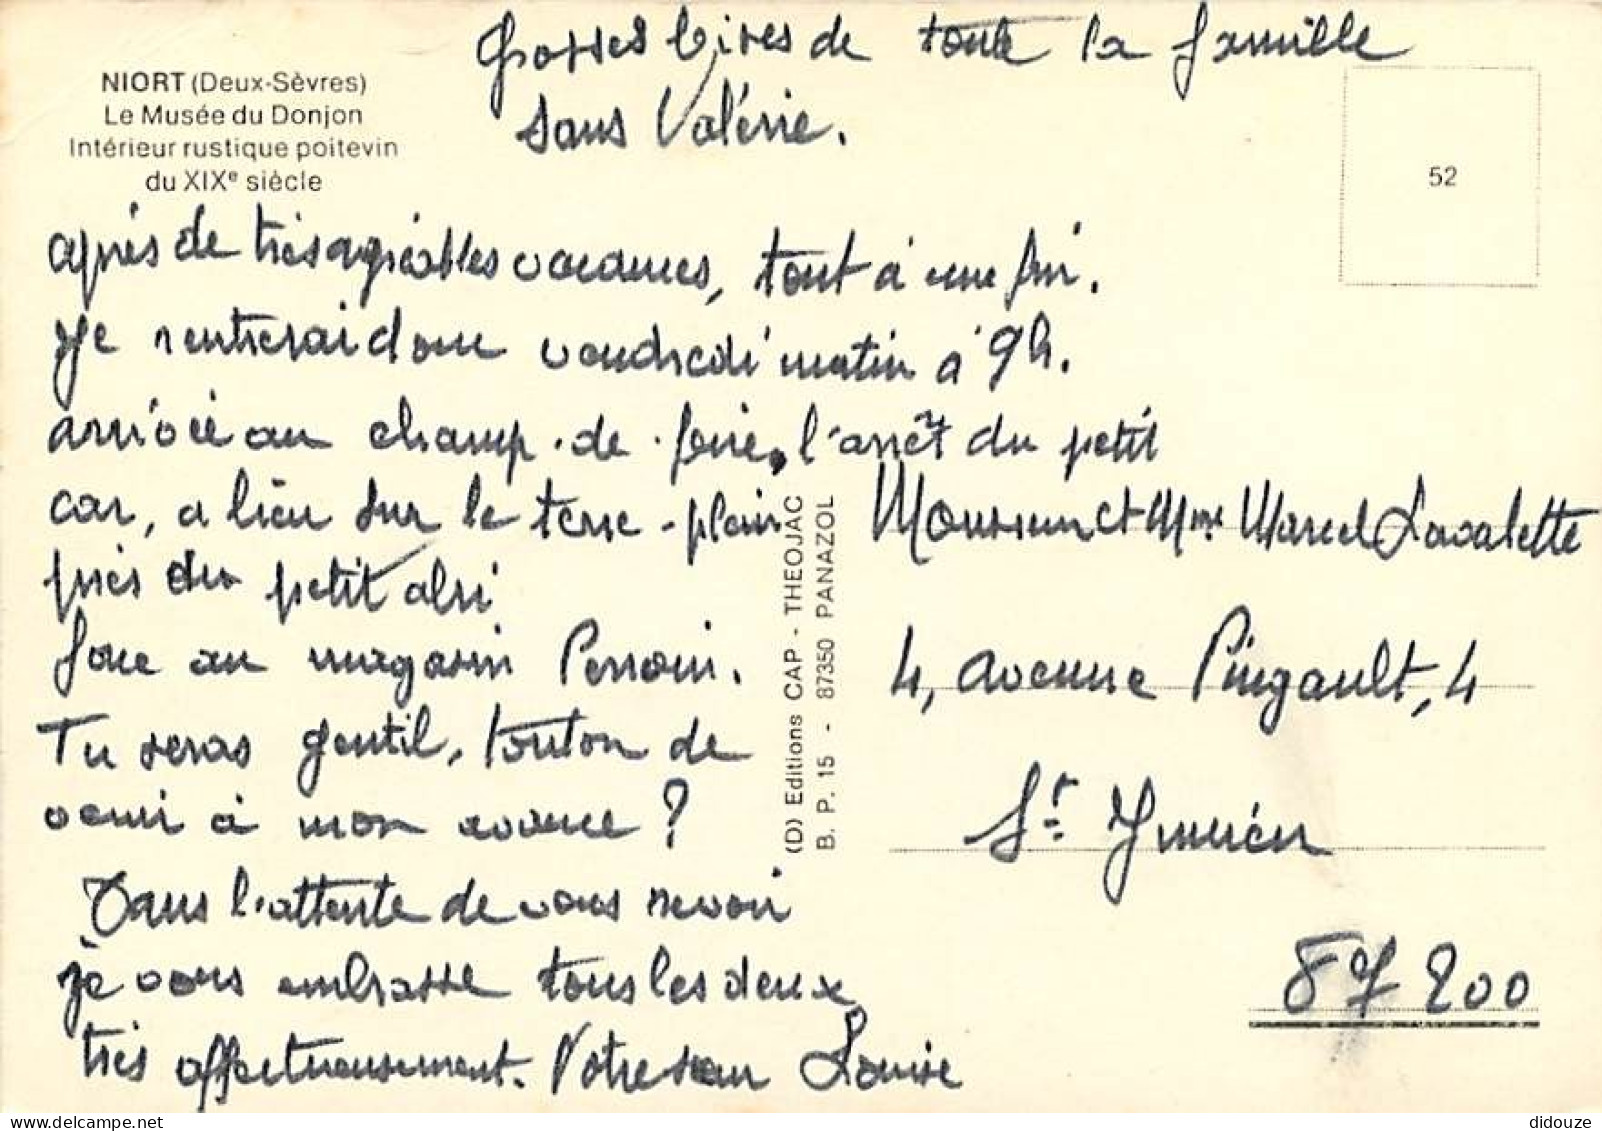 Grosses bises de toute la famille
sans Valérie.
NIORT (Deux-Sèvres)
Le Musée du Donjon
Intérieur rustique poitevin
du XIXe siècle
52
après de très agréables vacances, tout à une fin.
Je rentrerai donc vendredi matin à 9h.
arrivée au champ-de-foire, l'arrêt du petit
car, a lieu sur le terre-plein
près du petit abri
face au magasin Perrain.
Tu seras gentil, tonton de
venir à mon avance ?
Dans l'attente de vous revoir
je vous embrasse tous les deux
très affectueusement. Votre Louise
(D) Editions CAP - THEOJAC
B. P. 15 - 87350 PANAZOL
Monsieur et Mme Marcel Lavalette
4, avenue Pingault, 4
St Junien
87 200
didouze